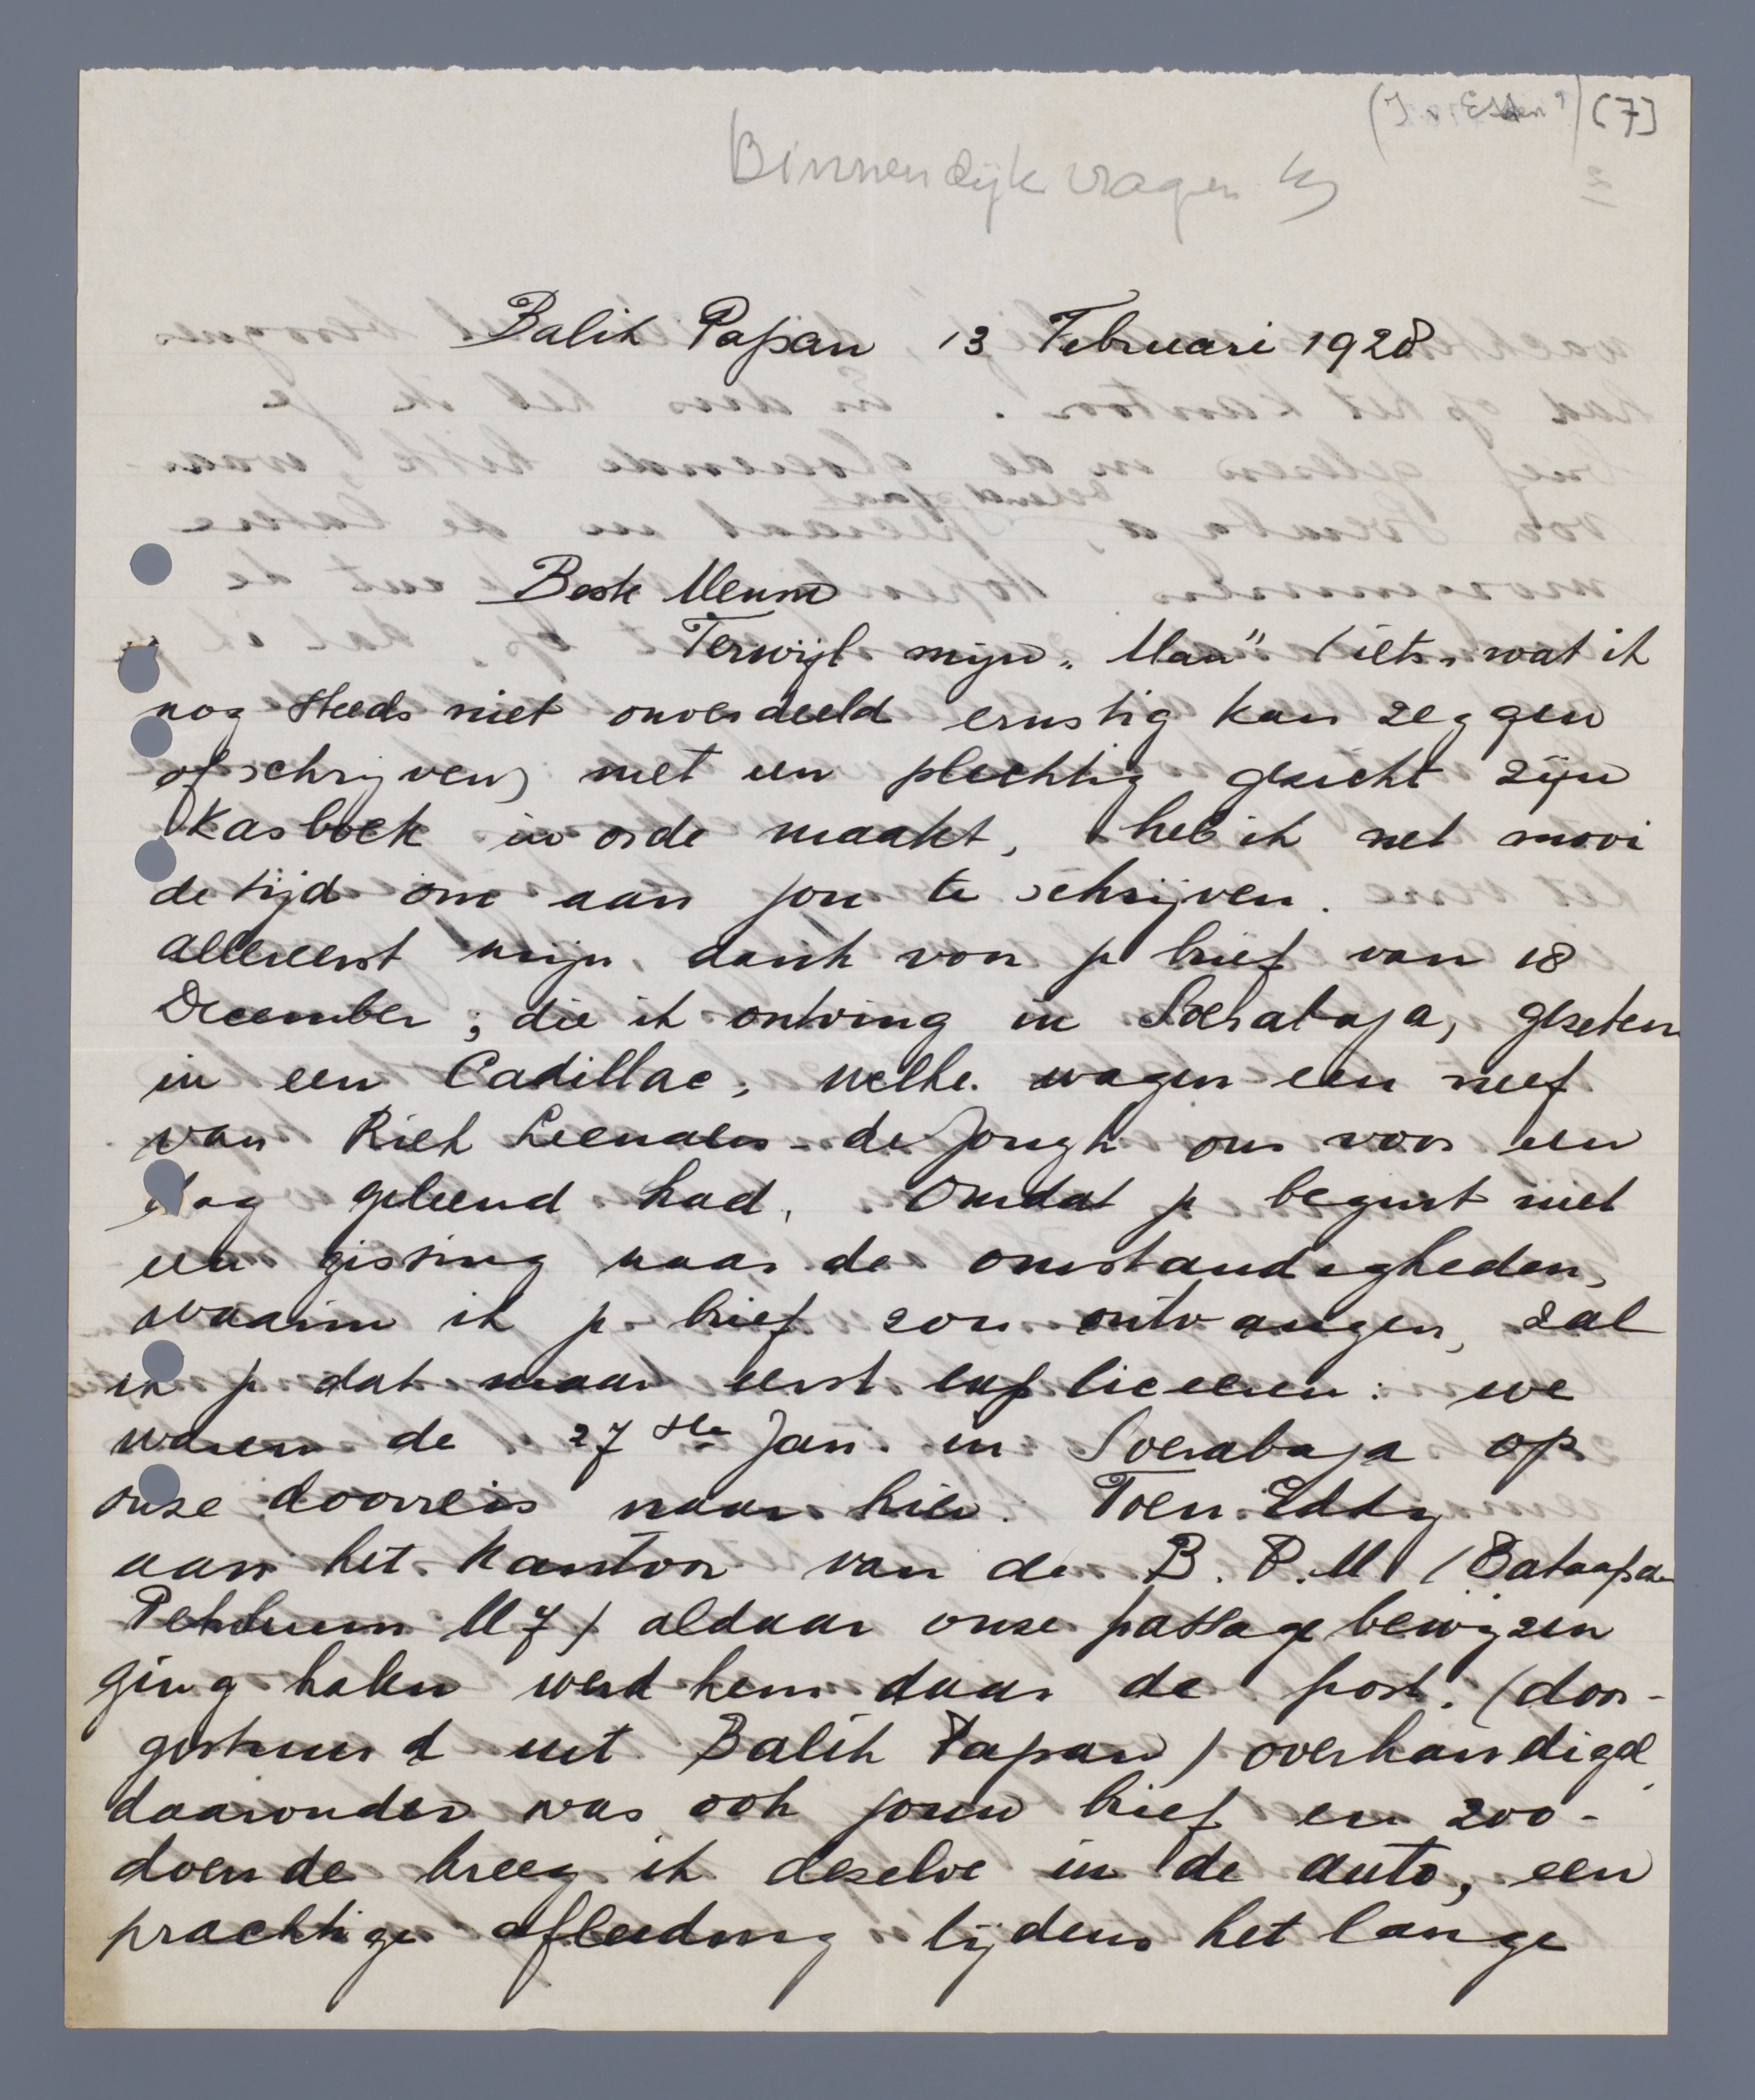 [7]
Binnendijk vragen
Balik Papan 13 Februari 1928
Beste Menno
Terwijl mijn "Man" (iets, wat ik
nog steeds niet onverdeeld ernstig kan zeggen
of schrijven) met een plechtig gezicht zijn
Kasboek in orde maakt, heb ik net mooi
de tijd om aan jou te schrijven.
allereerst mijn dank voor je brief van 18
December; die ik ontving in Soerabaja, gezeten
in een Cadillac, welke wagen een neef
van Riek Leenaers-de Jongh ons voor een
dag geleend had. Omdat je begint met
een gissing naar de omstandigheden,
waarin ik je brief zou ontvangen, zal
ik je dat maar eerst expliceeren: we
waren de 27ste Jan. in Soerabaja op
onze doorreis naar hier. Toen Eddy
aan het Kantoor van de B.P.M (Bataafsche
Petroleum Mij) aldaar onze passagebewijzen
ging halen werd hem daar de post (door-
gestuurd uit Balik Papan) overhandigd,
daaronder was ook jouw brief en zoo-
doende kreeg ik dezelve in de auto, een
prachtige afleiding tijdens het lange